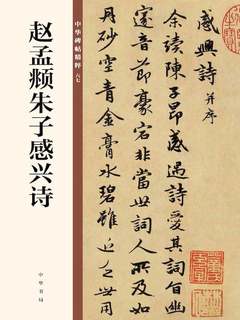 中华碑帖精粹
六七
赵孟頫朱子感兴诗
中华书局
感興詩 并序
余讀陳子昂感遇詩愛其詞旨幽
邃音節豪宕非當世詞人所及如
丹砂空青金膏水碧雖近乏世用